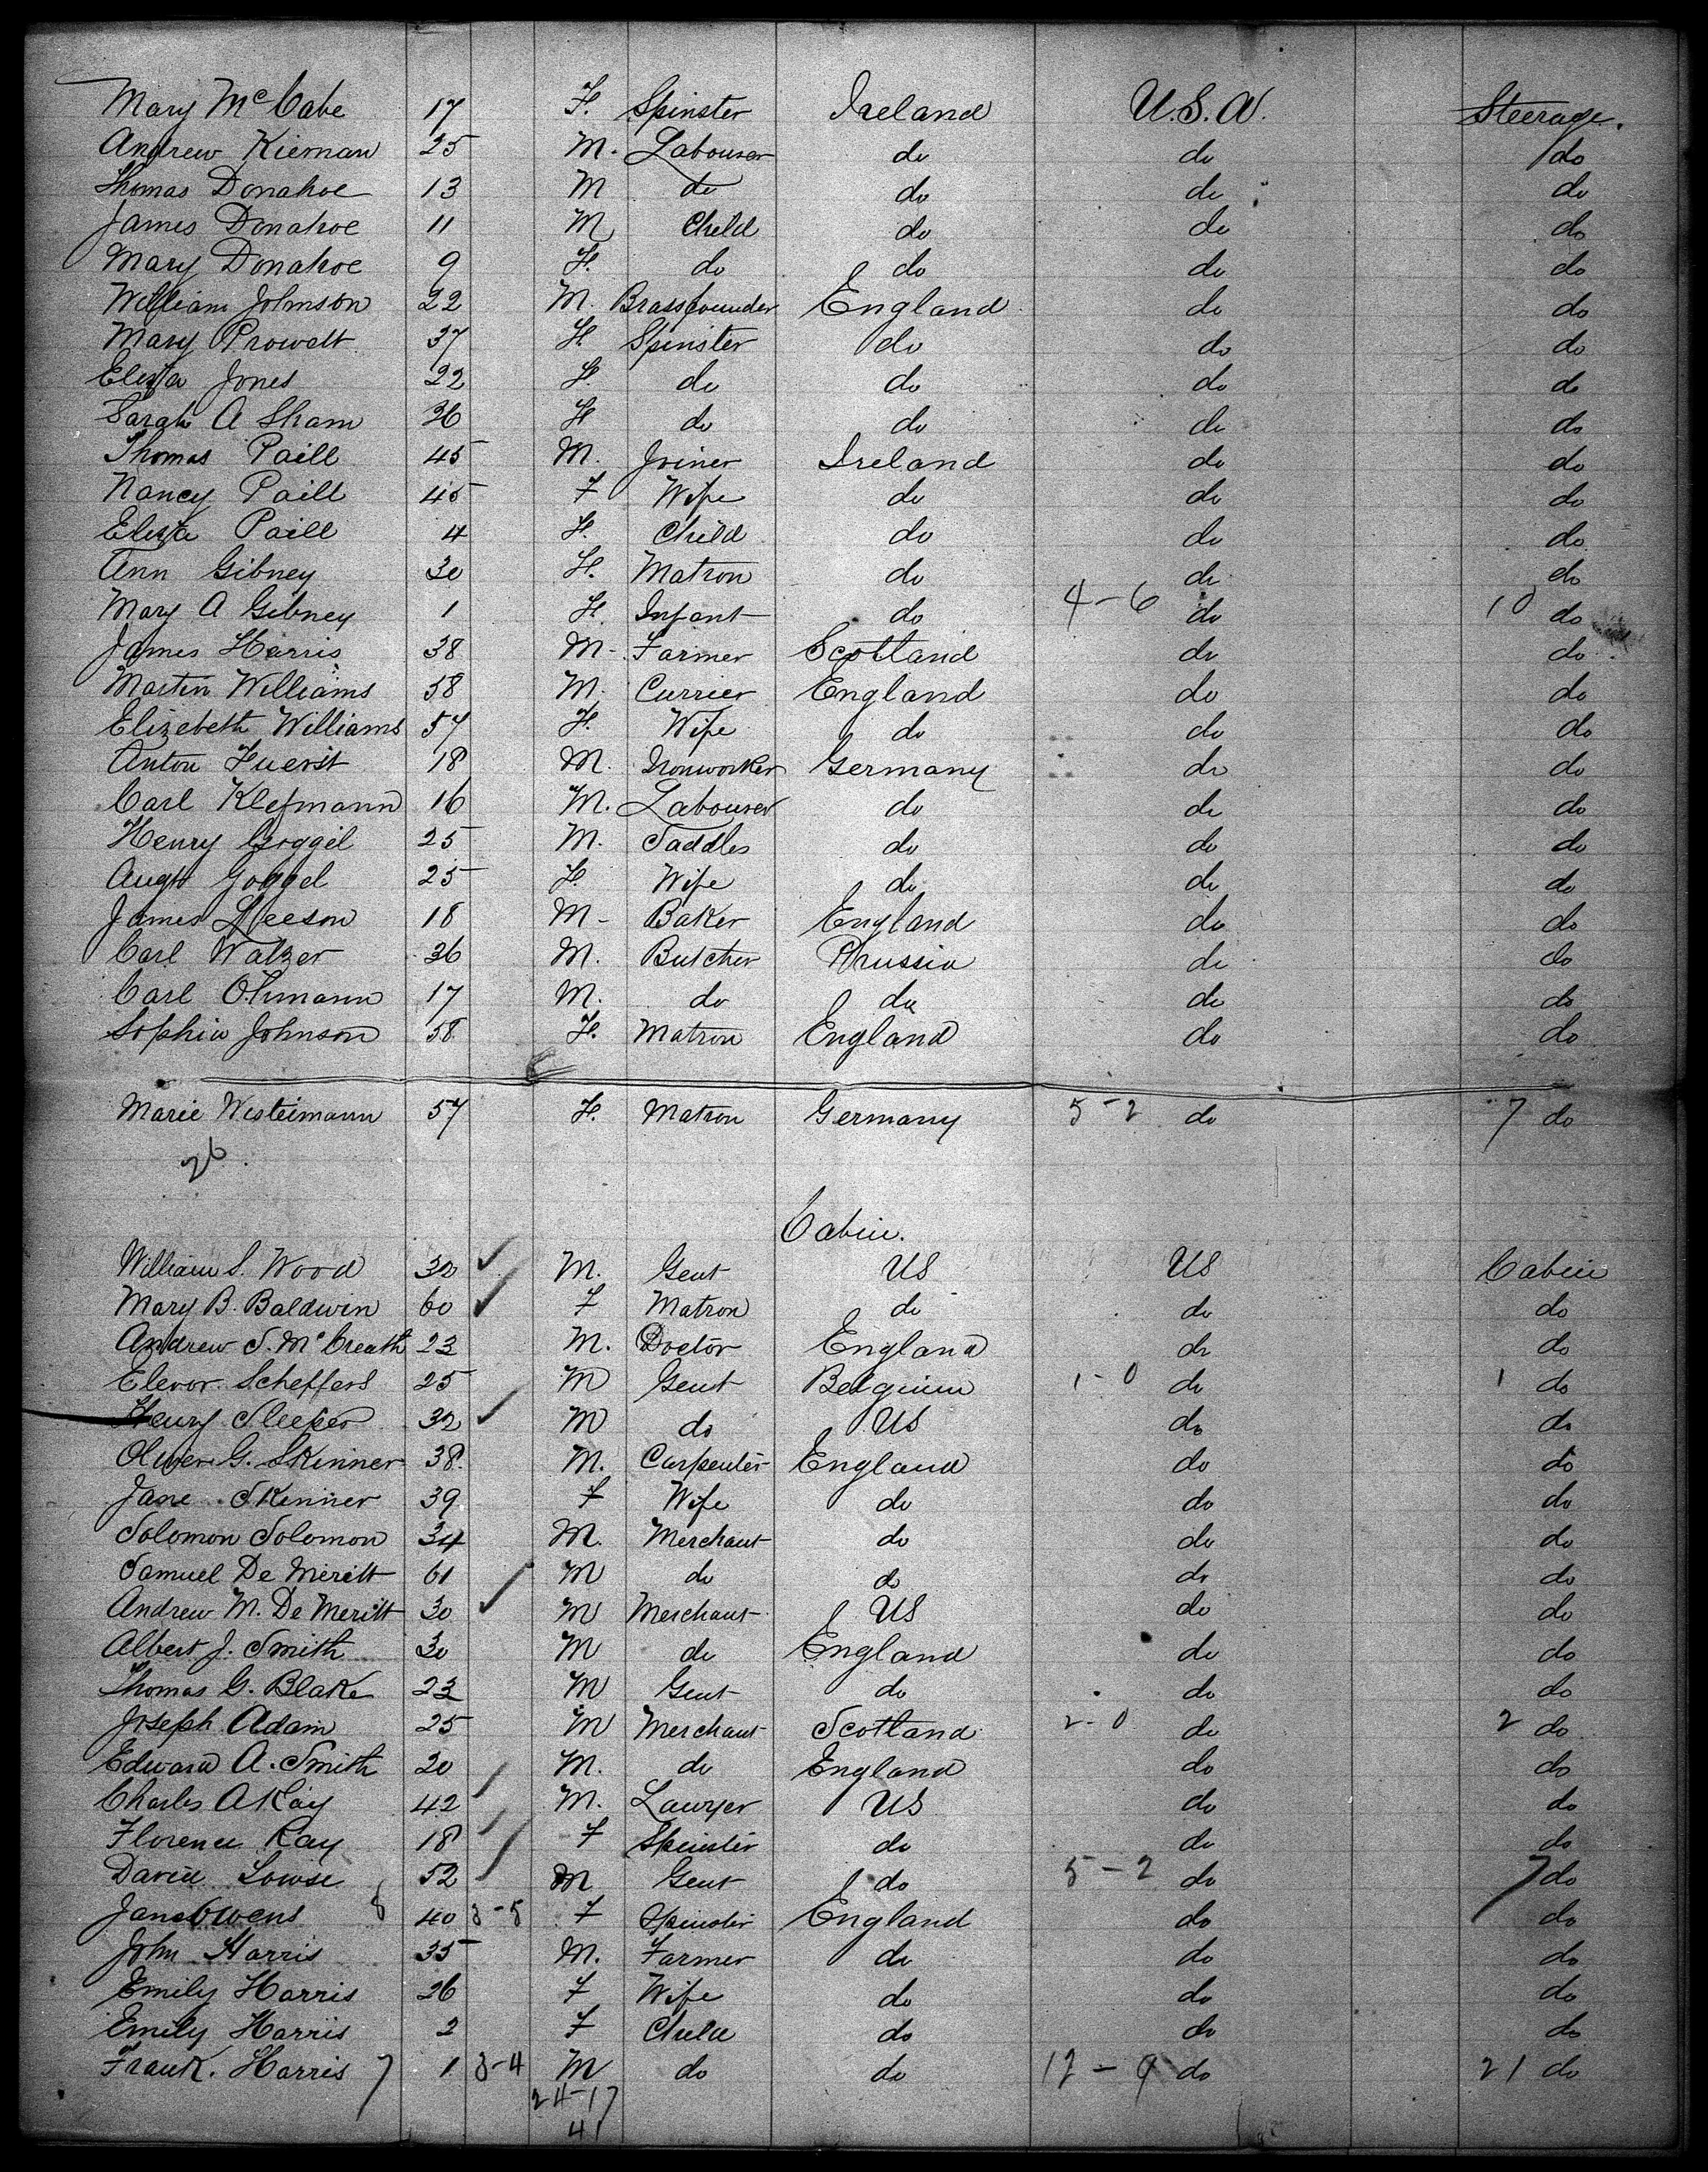 Mary McCabe 17 F. Spinster Ireland U.S.A. Steerage.
Andrew Kiernan 25 M. Labourer do do do
Thomas Donahoe 13 M do do do do
James Donahoe 11 M Child do do do
Mary Donahoe 9 F. do do do do
William Johnson 22 M. Brassfounder England do do
Mary Prowett 37 F. Spinster do do do
Eliza Jones 22 F. do do do do
Sarah A Sham 36 F do do do do
Thomas Paill 45 M. Joiner Ireland do do
Nancy Paill 45 F Wife do do do
Eliza Paill 4 F. Child do do do
Ann Gibney 30 F. Matron do do do
Mary A Gibney 1 F. Infant do 4-6 do 10 do
James Harris 38 M- Farmer Scotland do do
Martin Williams 58 M. Currier England do do
Elizebeth Williams 57 F. Wife do do do
Anton Fuerst 18 M. Ironworker Germany do do
Carl 16 M. Labourer do do do
Henry Goggel 25 M. Saddles do do do
Augt Goggel 25 F. Wife do do do
James Leeson 18 M- Baker England do do
Carl Walzer 36 M. Butcher Prussia do do
Carl Ohmann 17 M. do do do do
Sophia Johnson 58 F. Matron England do do
Marie Westeimann 57 F. Matron Germany 5-2 do 7 do
26
Cabin.
William S. Wood 32 M. Gent US US Cabin
Mary B. Baldwin 60 F Matron do do do
Andrew S. McCreath 23 M. Doctor England do do
Elevor Scheffers 25 M Gent Belgium 1-0 do 1 do
Henry Sleeper 32 M do US do do
Oliver G. Skinner 38. M. Carpenter England do do
Jane Skinner 39 F Wife do do do
Solomon Solomon 34 M. Merchant do do do
Samuel De Meritt 61 M do do do do
Andrew M. De Meritt 30 M Merchant US do do
Albert J. Smith 30 M do England do do
Thomas G. Blake 23 M Gent do do do
Joseph Adam 25 M Merchant Scotland 2-0 do 2 do
Edward A. Smith 20 M. do England do do
Charles A Kay 42 M. Lawyer US do do
Florence Kay 18 F Spinster do do do
David Lowse 52 M Gent do 5-2 do 7 do
Jane Owens 8 40 3-5 F Spinster England do do
John Harris 35 M. Farmer do do do
Emily Harris 26 F Wife do do do
Emily Harris 2 F Child do do do
Frank. Harris 7 1 3-4 M do do 12-9 do 21 do
24-17
41